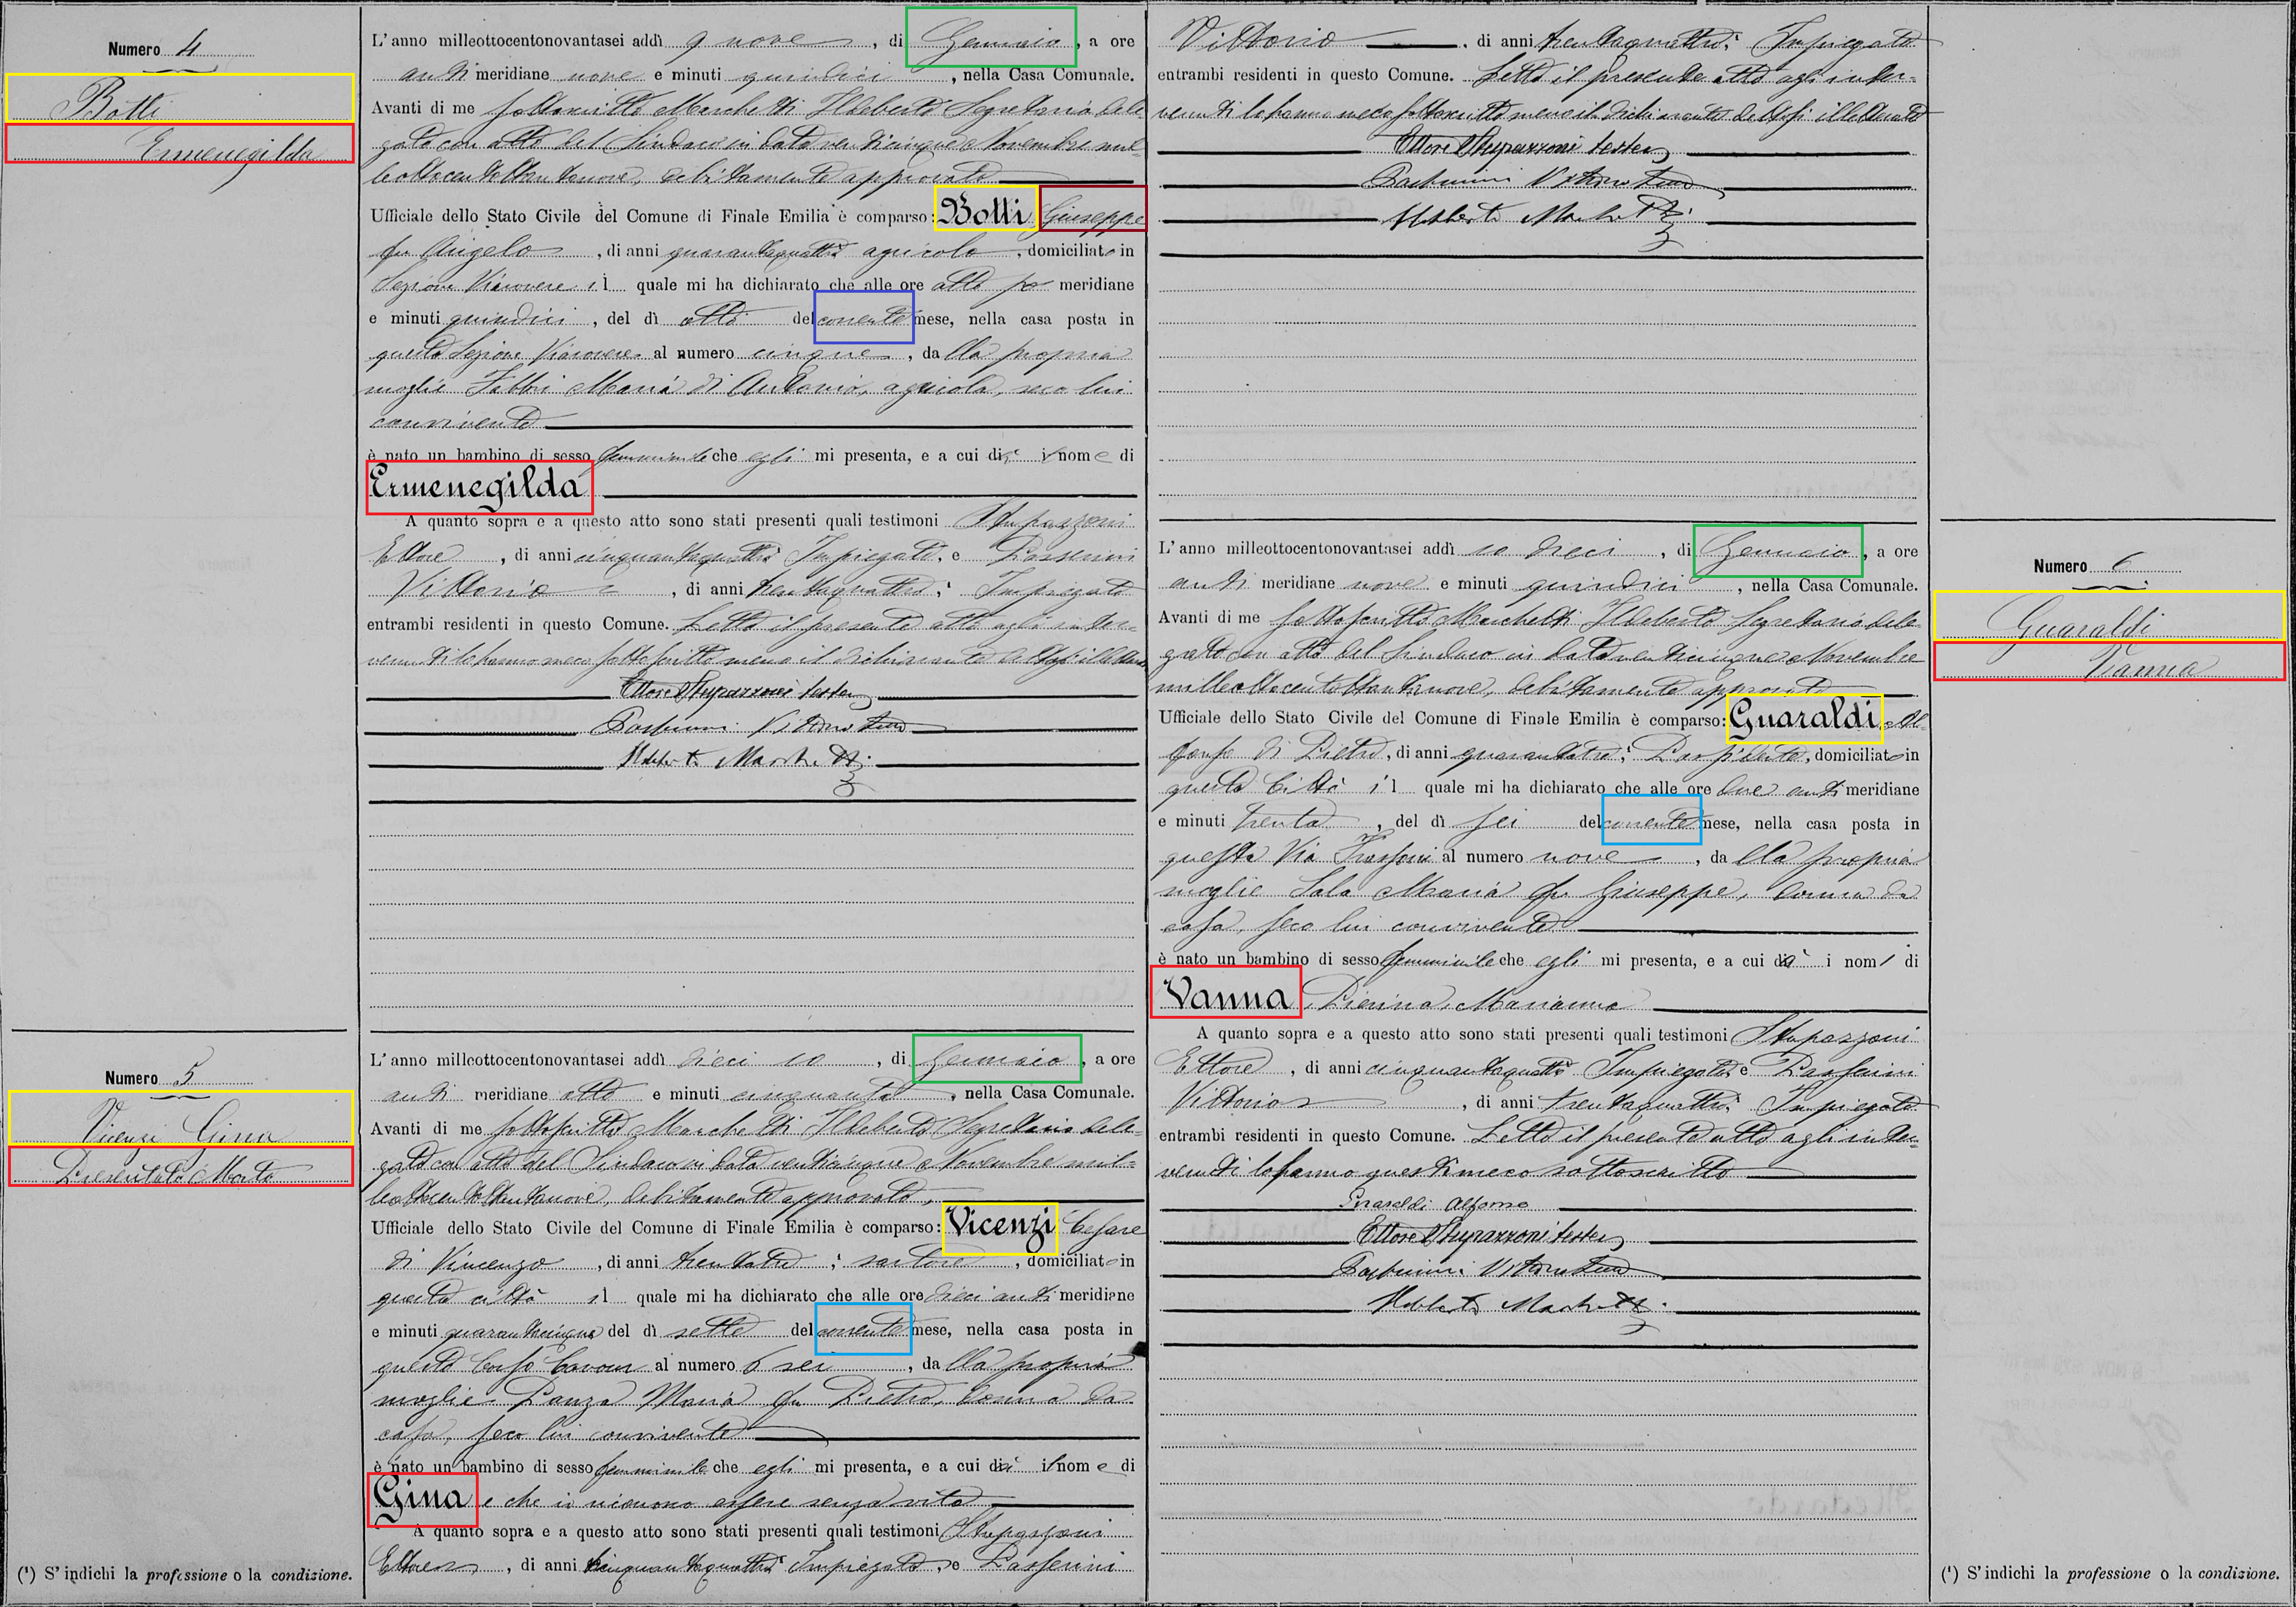 Numero 4
Botti
Ermenegilda
L'anno milleottocentonovantasei addì 9 nove, di Gennaio, a ore
anti meridiane nove e minuti quindici, nella Casa Comunale.
Avanti di me sottoscritto Marchetti Ildeberto Segretario dele
gato con atto del Sindaco in data venticinque Novembre mil
leottocentottantanove, debitamente approvato
Ufficiale dello Stato Civile del Comune di Finale Emilia è comparso: Botti Giuseppe
fu Angelo, di anni quarantaquattro agricolo, domiciliato in
Sezione Viarovere il quale mi ha dichiarato che alle ore otto po meridiane
e minuti quindici, del dì otto del corrente mese, nella casa posta in
questa Sezione Viarovere al numero cinque, da lla propria
moglie Fabbri Maria di Antonio, agricola, seco lui
convivente
è nato un bambino di sesso femminile che egli mi presenta, e a cui dà il nome di
Ermenegilda
A quanto sopra e a questo atto sono stati presenti quali testimoni Stupazzoni
Ettore, di anni cinquantaquattro Impiegato, e Passerini
Vittorio, di anni trentaquattro; Impiegato
entrambi residenti in questo Comune. Letto il presente atto agli inter-
venuti lo hanno meco sottoscritto meno il dichiarante
Ettore Stupazzoni teste
Passerini Vittorio teste
Ildeberto Marchetti
Numero 5
Vicenzi Gina
Presentata Morta
L'anno milleottocentonovantasei addì dieci 10, di Gennaio, a ore
anti meridiane otto e minuti cinquanta, nella Casa Comunale.
Avanti di me sottoscritto Marchetti Ildeberto Segretario dele-
gato con atto del Sindaco in data venticinque Novembre mil-
leottocentottantanove, debitamente approvato,
Ufficiale dello Stato Civile del Comune di Finale Emilia è comparso: Vicenzi Cesare
di Vincenzo, di anni trentatre; sartore, domiciliato in
questa città il quale mi ha dichiarato che alle ore dieci anti meridiane
e minuti quarantacinque del dì sette del corrente mese, nella casa posta in
questo Corso Cavour al numero 6 sei, da lla propria
moglie Panza Maria fu Pietro, donna da
casa, seco lui convivente
è nato un bambino di sesso femminile che egli mi presenta, e a cui dà il nome di
Gina e che io riconosco essere senza vita
A quanto sopra e a questo atto sono stati presenti quali testimoni Stupazzoni
Ettore, di anni cinquantaquattro Impiegato, e Passerini
(¹) S'indichi la professione o la condizione.
Vittorio, di anni trentaquattro; Impiegato
entrambi residenti in questo Comune. Letto il presente atto agli inter-
venuti lo hanno meco sottoscritto meno il dichiarante
Ettore Stupazzoni teste
Passerini Vittorio teste
Ildeberto Marchetti
Numero 6
Guaraldi
Vanna
L'anno milleottocentonovantasei addì 10 dieci, di Gennaio, a ore
anti meridiane nove e minuti quindici, nella Casa Comunale.
Avanti di me sottoscritto Marchetti Ildeberto Segretario dele-
gato con atto del Sindaco in data venticinque Novembre
milleottocentottantanove, debitamente approvato
Ufficiale dello Stato Civile del Comune di Finale Emilia è comparso: Guaraldi Al-
fonso di Pietro, di anni quarantatre; Possidente, domiciliato in
questa Città il quale mi ha dichiarato che alle ore due anti meridiane
e minuti trenta, del dì sei del corrente mese, nella casa posta in
questa Via Trassoni al numero nove, da lla propria
moglie Sala Maria fu Giuseppe, donna da
casa, seco lui convivente
è nato un bambino di sesso femminile che egli mi presenta, e a cui dà i nomi di
Vanna, Pierina, Marianna
A quanto sopra e a questo atto sono stati presenti quali testimoni Stupazzoni
Ettore, di anni cinquantaquattro Impiegato e Passerini
Vittorio, di anni trentaquattro; Impiegato
entrambi residenti in questo Comune. Letto il presente atto agli inter-
venuti lo hanno questi meco sottoscritto
Guaraldi Alfonso
Ettore Stupazzoni teste
Passerini Vittorio teste
Ildeberto Marchetti
(¹) S'indichi la professione o la condizione.